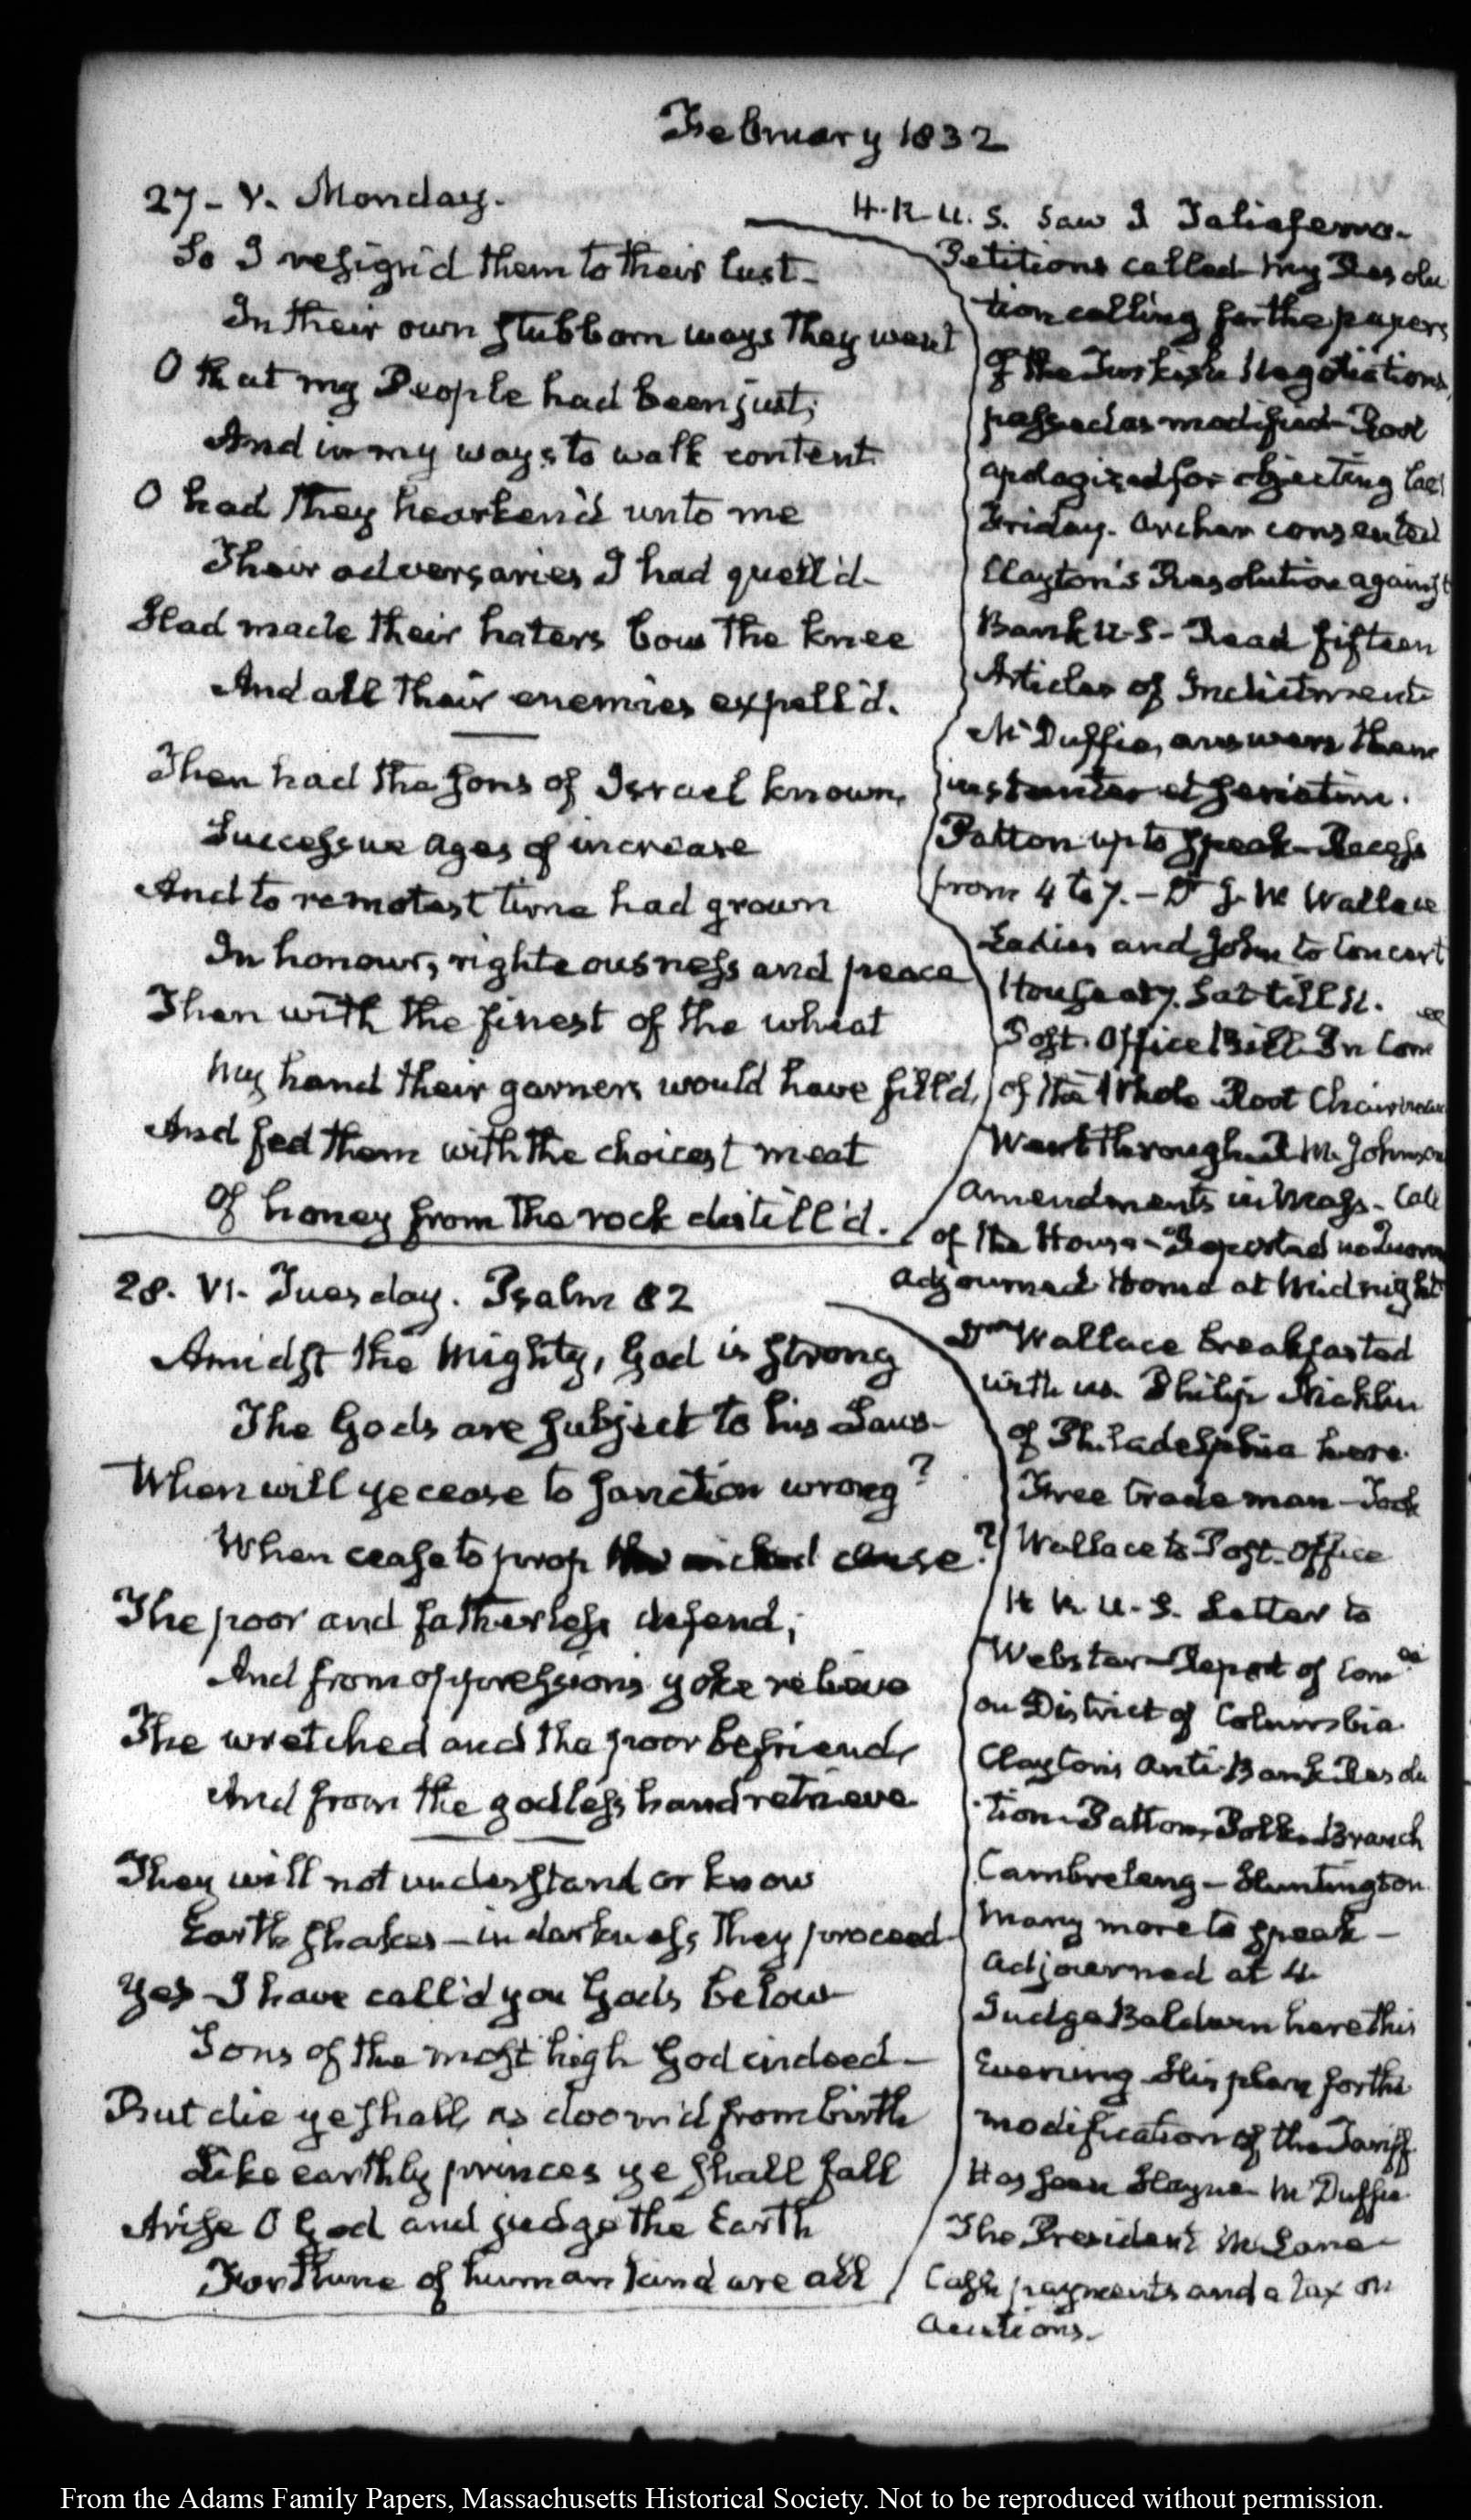 February 1832
27 - V. Monday.
So I resign'd them to their lust -
In their own stubborn ways they went
O that my People had been just;
And in my ways to walk content.
O had they hearken'd unto me
Their adversaries I had quell'd -
Had made their haters bow the knee
And all their enemies expell'd.
Then had the sons of Israel known,
Successive ages of increase
And to remotest time had grown
In honour, righteousness and peace
Then with the finest of the wheat
My hand their garners would have fill'd,
And fed them with the choicest meat
Of honey from the rock distill'd.
H. R. U. S. Saw J Taliaferro -
Petitions called - My Resolu
tion calling for the papers
of the Turkish Negotiations,
passed as modified - Root
apologized for objecting last
Friday. Archer consented
Clayton's Resolution against
Bank U.S - Read fifteen
Articles of Indictment
McDuffie, answers them
instanter et seriatim.
Patton up to speak - Recess
from 4 to 7. - Dr J. W Wallace
Ladies and John to Concert
House at 7. Sat till 11.
Post. Office Bill. In Comee
of the Whole Root Chairman
Went through R M. Johnson
amendments in Mass. Call
of the House - Reported no Quorum
Adjourned Home at Midnight
28. VI. Tuesday. Psalm 82
Amidst the Mighty, God is strong
The Gods are subject to his Laws -
When will ye cease to sanction wrong?
When cease to prop the wicked cause?
The poor and fatherless defend;
And from oppression's yoke relieve
The wretched and the poor befriend,
And from the godless hand retrieve
They will not understand or know
Earth shakes - in darkness they proceed -
Yes - I have call'd you Gods below -
Sons of the most high God indeed -
But die ye shall, as doom'd from birth
Like earthly princes ye shall fall
Arise O God and judge the Earth
For thine of human kind are all
Dr Wallace breakfasted
with us. Philip Nicklin
of Philadelphia here.
Free trade man - Took
Wallace to Post-Office
H R U. S. Letter to
Webster - Report of Comee
on District of Columbia
Clayton's Anti-Bank Resolu
tion - Patton, Polk. Branch
Cambreleng - Huntington.
Many more to speak -
Adjourned at 4.
Judge Baldwin here this
Evening His plan for the
modification of the Tariff.
Has seen Hayne McDuffie
The President McLane -
Cash payments and a tax on
auctions.
From the Adams Family Papers, Massachusetts Historical Society. Not to be reproduced without permission.